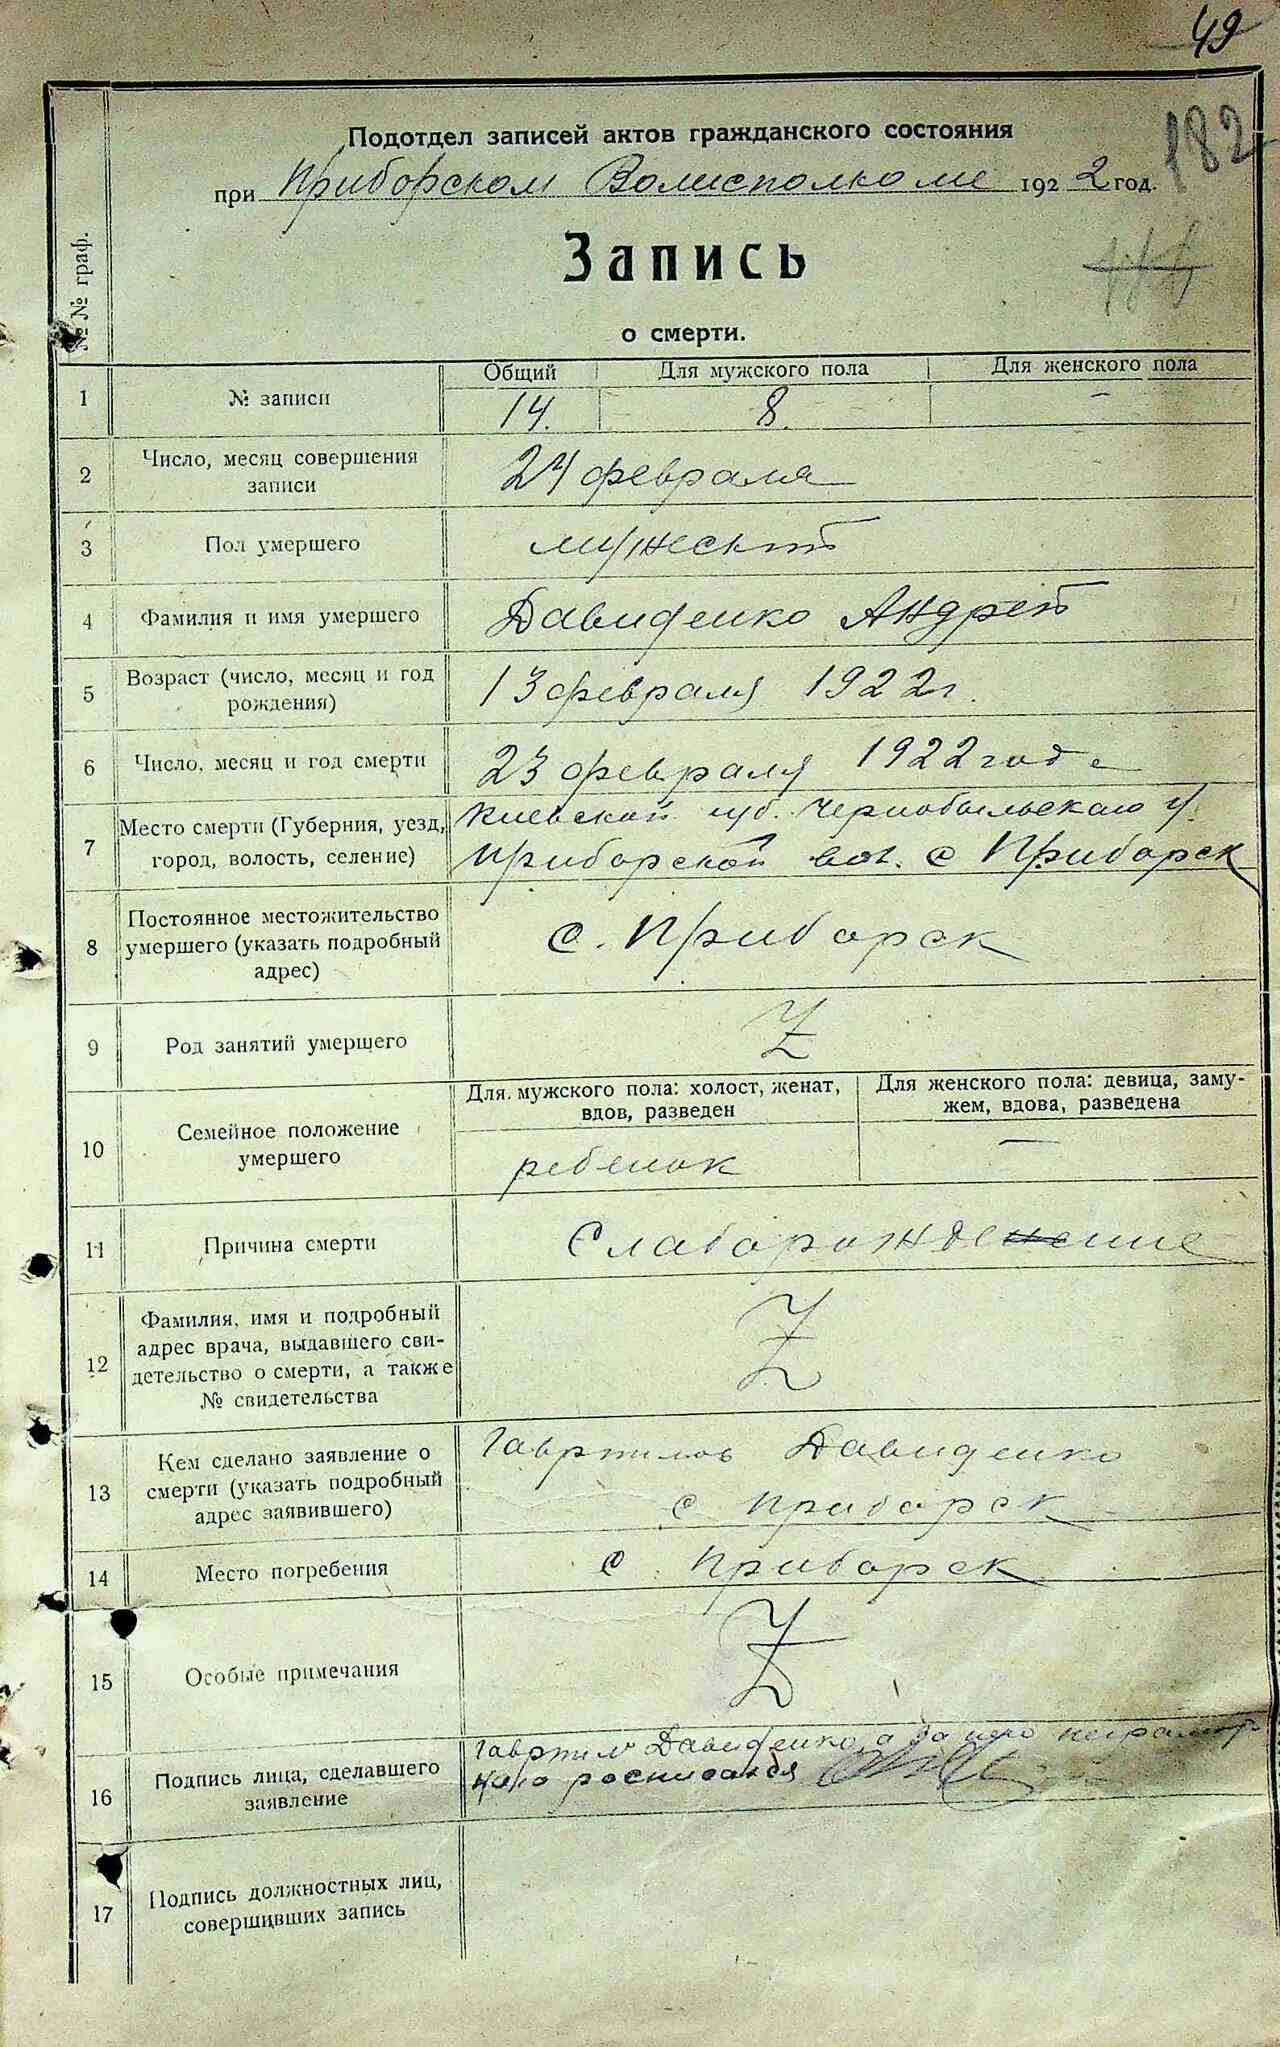 49
182
Подотдел записей актов гражданского состояния
при Приборском Волисполкоме 1922 год.
Запись
о смерти.
№№ граф.
Общий Для мужского пола Для женского пола
1 № записи 14. 8. –
2 Число, месяц совершения
записи 24 февраля
3 Пол умершего мужеский
4 Фамилия и имя умершего Давиденко Андрей
5 Возраст (число, месяц и год
рождения) 13 февраля 1922 г.
6 Число, месяц и год смерти 23 февраля 1922 года
7 Место смерти (Губерния, уезд,
город, волость, селение)
Киевской губ. Чернобыльскаго у.
Приборской вол. с Приборск
8 Постоянное местожительство
умершего (указать подробный
адрес)
с. Приборск
9 Род занятий умершего Z
10 Семейное положение
умершего
Для мужского пола: холост, женат,
вдов, разведен
Для женского пола: девица, заму-
жем, вдова, разведена
ребенок –
11 Причина смерти Слаборождение
12 Фамилия, имя и подробный
адрес врача, выдавшего сви-
детельство о смерти, а также
№ свидетельства
Z
13 Кем сделано заявление о
смерти (указать подробный
адрес заявившего)
Давиденко
с Приборск
14 Место погребения с. Приборск
15 Особые примечания Z
16 Подпись лица, сделавшего
заявление
Давиденко, а за него неграмот
наго росписался
17 Подпись должностных лиц,
совершивших запись